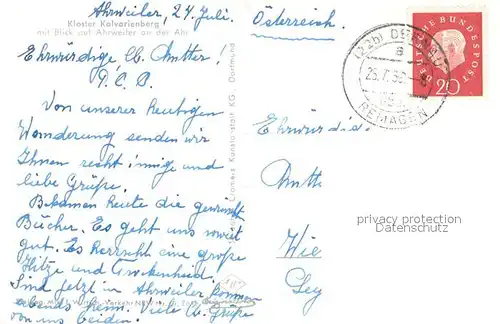 Ahrweiler, 24. Juli.
Österreich.
Kloster Kalvarienberg
mit Blick auf Ahrweiler an der Ahr
Ehrwürdige lb. Mutter!
Von unserer heutigen
Wanderung senden wir
Ihnen recht innige und
liebe Grüße.
Bekamen heute die gewünscht
Bücher. Es geht uns soweit
gut. Es herrscht eine große
Hitze und Trockenheit.
Sind jetzt in Ahrweiler, kommen
abends heim. Viele lb. Grüße
von uns beiden.
Cramers Kunstanstalt KG Dortmund
DEUTSCHE BUNDESPOST
20
(22b)
a
REMAGEN
Ehrwürdige
Mutter
privacy protection
Datenschutz
Wie